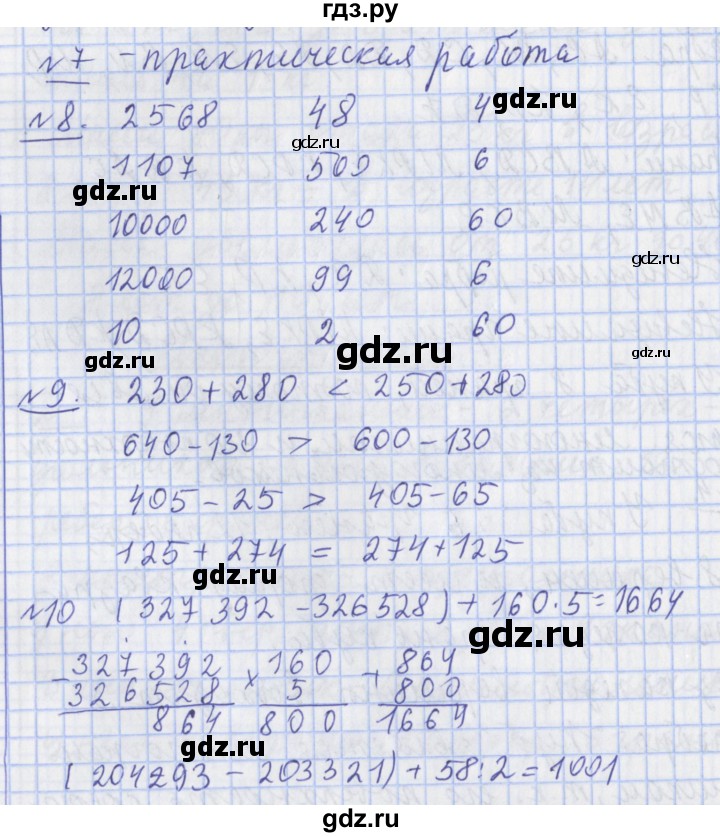 гдз.ру
№7 - практическая работа
№8. 2568 48 4
gdz.ru
gdz.ru
1107 509 6
gdz.ru
10000 240 60
gdz.ru
12000 99 6
10 2 60
gdz.ru
gdz.ru
gdz.ru
№9. 230+280 < 250+280
640-130 > 600-130
405-25 > 405-65
125+274 = 274+125
gdz.ru
№10 (327392-326528)+160·5=1664
gdz.ru
-327392 ×160 +864
326528 5 800
864 800 1664
gdz.ru
(204293-203321)+58:2=1001
gdz.ru